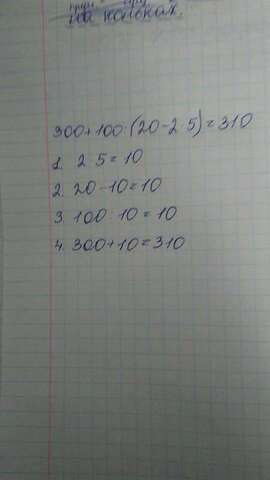 на полюсах.
300+100:(20-2·5)=310
1. 2·5=10
2. 20-10=10
3. 100:10=10
4. 300+10=310